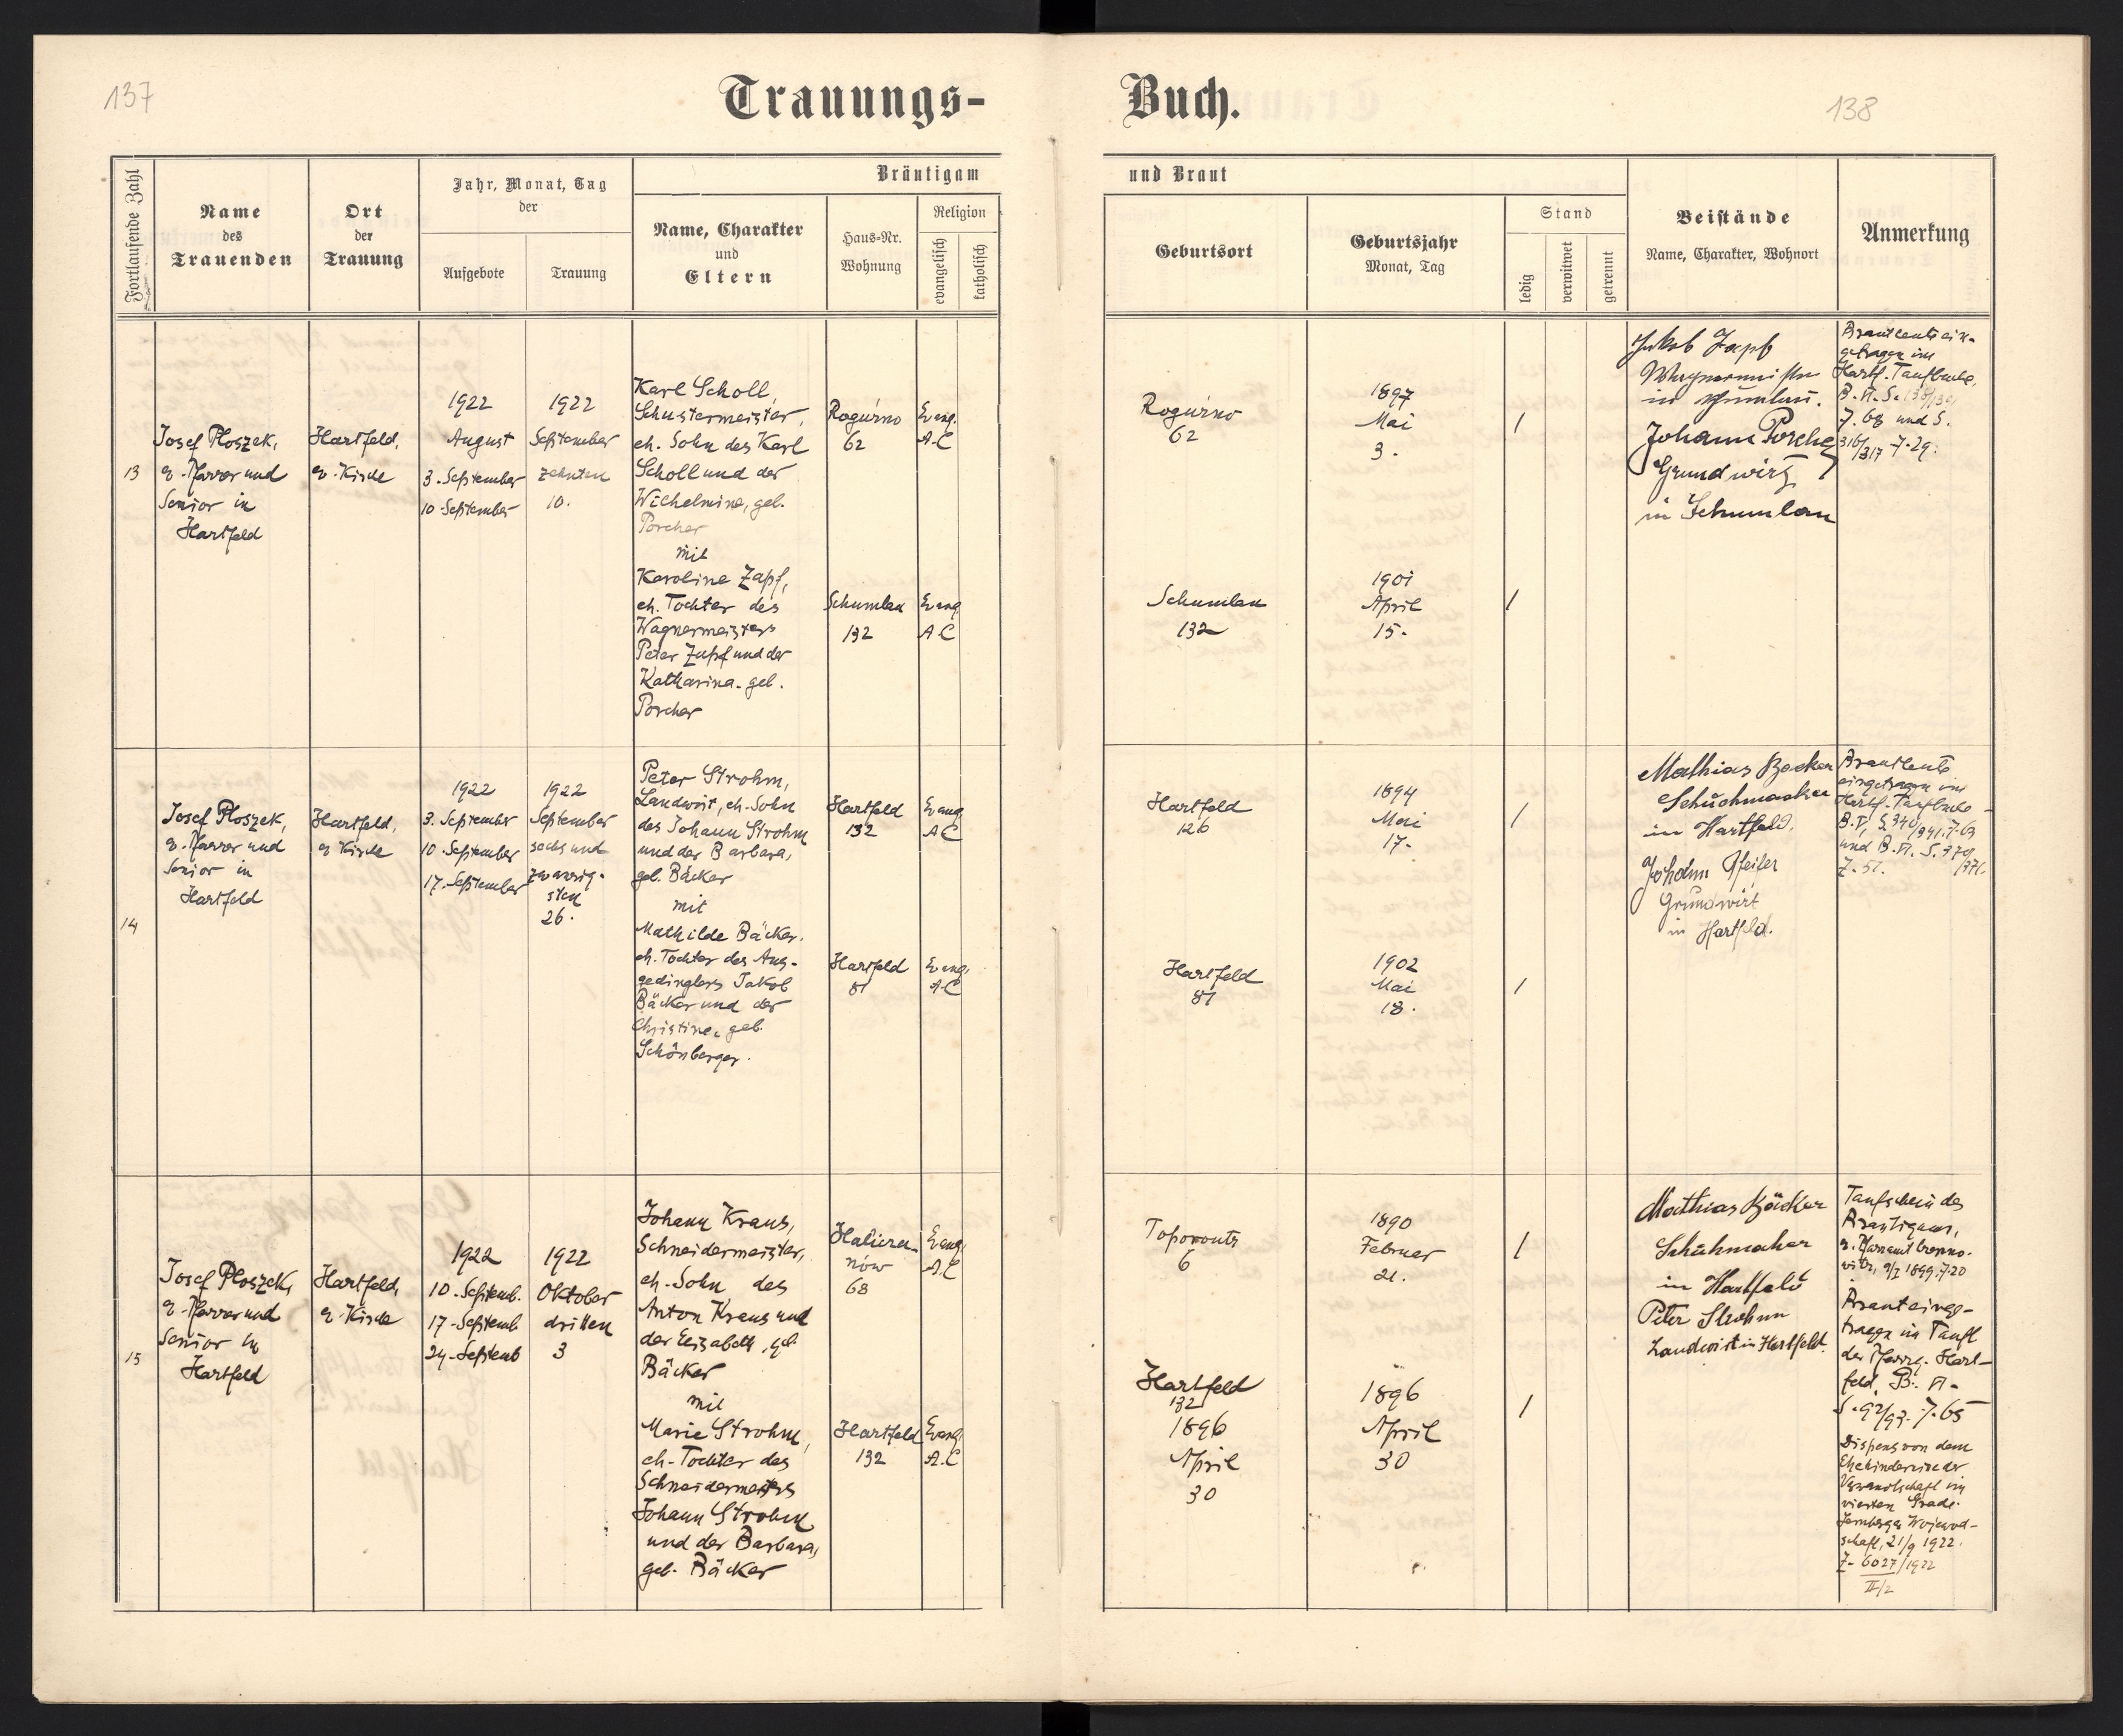 137
138
Trauungs-
Buch.
Fortlaufende Zahl
Name
des
Trauenden
Ort
der
Trauung
Jahr, Monat, Tag
der
Aufgebote
Trauung
Bräutigam
Name, Charakter
und
Eltern
Haus-Nr.
Wohnung
Religion
evangelisch
katholisch
und Braut
Geburtsort
Geburtsjahr
Monat, Tag
Stand
ledig
verwitwet
getrennt
Beistände
Name, Charakter, Wohnort
Anmerkung
13
Josef Ploszek,
e. Pfarrer und
Senior in
Hartfeld
Hartfeld,
e. Kirche
1922
August
3. September
10 September
1922
September
zehnten
10.
Karl Scholl,
Schustermeister,
eh. Sohn des Karl
Scholl und der
Wilhelmine, geb.
Porcher
mit
Karoline Zapf,
eh. Tochter des
Wagnermeisters
Peter Zapf und der
Katharina. geb.
Porcher
Rogúzno
62
Evang.
A.C
Schumlau
132
Evang
A C
Rogúzno
62
1897
Mai
3.
/
Schumlau
132
1901
April
15.
/
Jakob Zapf
in Schumlau.
Johann Porcher
Grundwirt
in Schumlau
Brautleute ein-
getragen im
Hartf. Taufbuche,
7. 68 und S.
316/317 7. 29.
14
Josef Ploszek,
e. Pfarrer und
Senior in
Hartfeld
Hartfeld,
e. Kirche
1922
3. September
10. September
17. September
1922
September
sechs und
zwanzig-
sten
26.
Peter Strohm,
Landwirt, eh. Sohn
des Johann Strohm
und der Barbara,
geb. Bäcker
mit
Mathilde Bäcker.
eh. Tochter des Aus-
gedinglers Jakob
Bäcker und der
Christine, geb.
Schönberger.
Hartfeld
132
Evang
A C
Hartfeld
81
Evang.
A.C
Hartfeld
126
1894
Mai
17.
/
Hartfeld
81
1902
Mai
18.
/
Mathias Becker
Schuchmacher
in Hartfeld.
Johann Pfeifer
Grundwirt
in Hartfeld.
Brautleute
eingetragen im
Hartf. Taufbuche
B. V, S. 340/341. 7. 63
15
Josef Ploszek,
e. Pfarrer und
Senior in
Hartfeld
Hartfeld,
e. Kirche
1922
10. Septemb.
17. Septemb
24. Septemb
1922
Oktober
dritten
3
Johann Kraus,
Schneidermeister,
eh. Sohn des
Anton Kraus und
der Elisabeth, geb.
Bäcker
mit
Marie Strohm,
eh. Tochter des
Schneidermeisters
Johann Strohm
und der Barbara,
geb. Bäcker
Haliczа-
nów
68
Evang.
A.C
Hartfeld
132
Evang.
A.C
Toporoutz
6
1890
Februar
21.
/
Hartfeld
132
1896
April
30
1896
April
30
/
Mathias Bäcker
Schuhmacher
in Hartfeld
Peter Strohm
Landwirt in Hartfeld.
Taufschein des
Bräutigams,
e. Pfarramt Czerno-
witz, 9/I 1899. 7. 20
Braut einge-
tragen im Taufb
der Pfarrg. Hart-
feld, B. VI.
S. 92/93. 7. 65
Dispens von dem
Ehehindernis der
Verwandtschaft im
vierten Grade.
Lemberger Wojewod-
schaft, 21/9 1922.
Z. 6027/1922
II/2